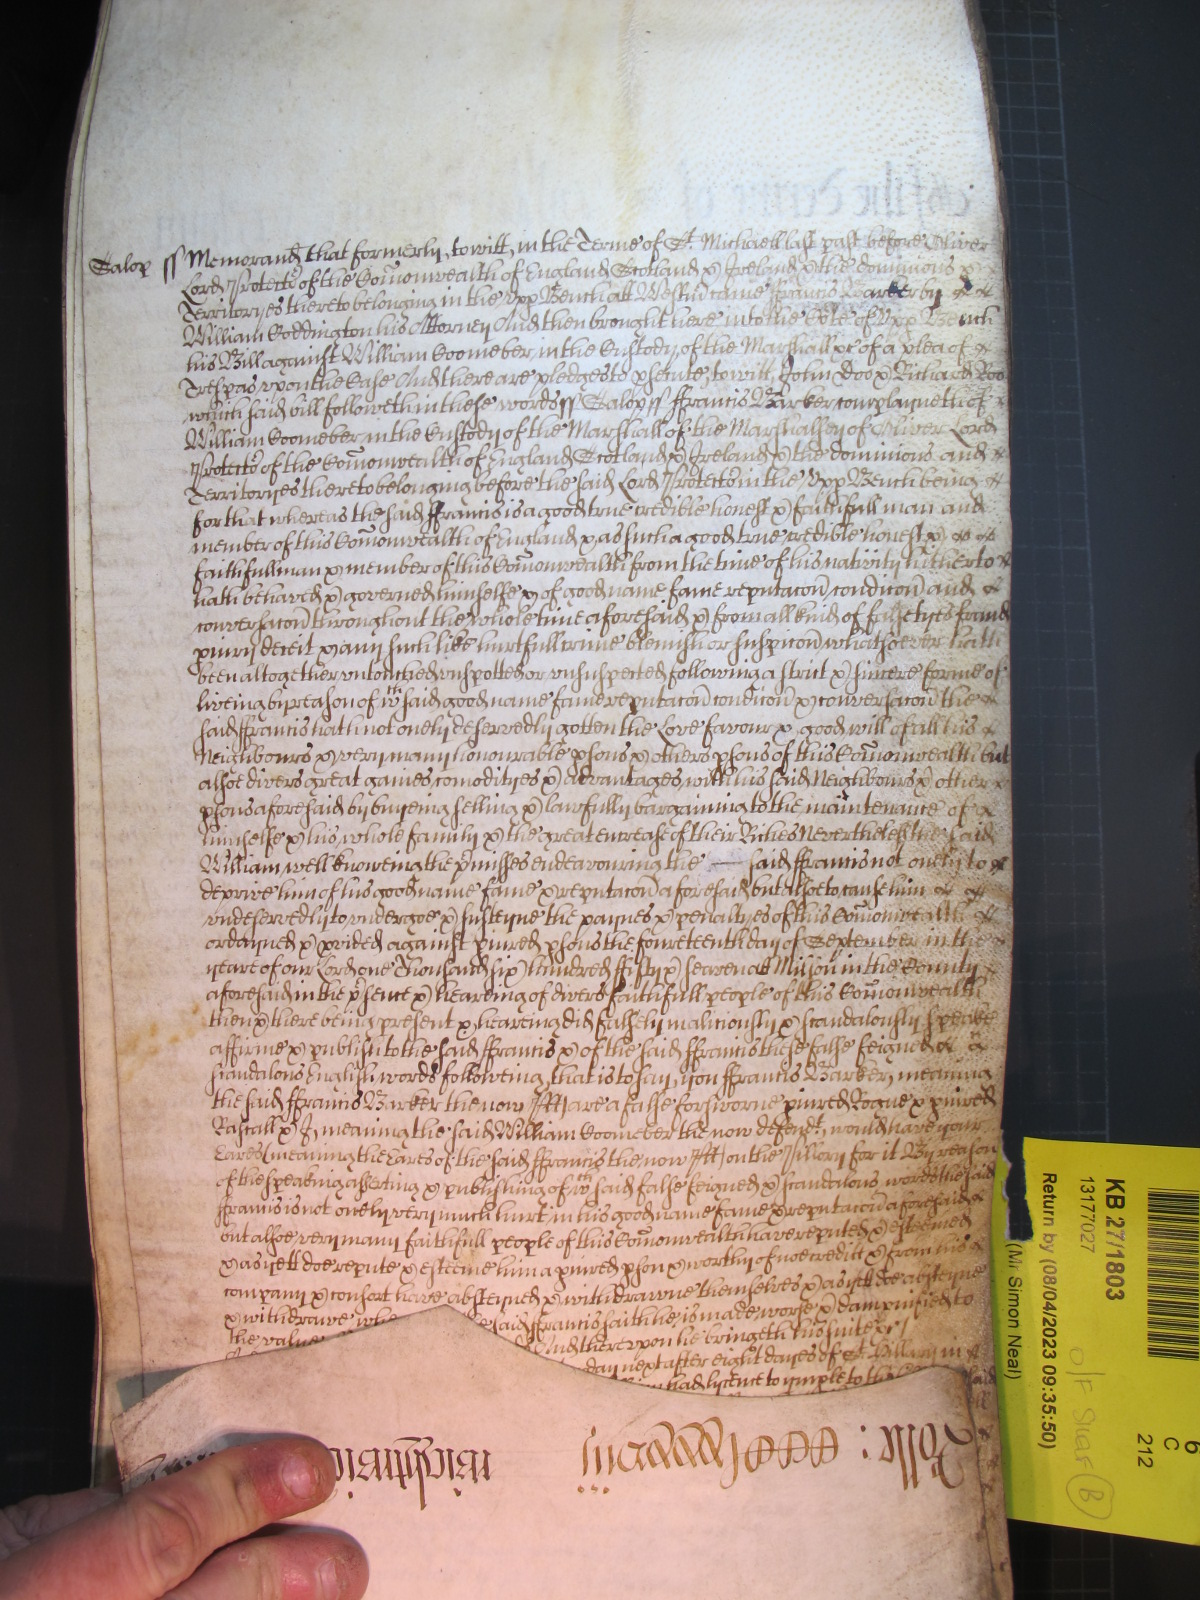 Salop ss Memorand that formerly, to witt, in the Terme of St. Michaell last past before Oliver
Lord Protector of the Comonwealth of England Scotland & Ireland & the dominions &
Territoryes thereto belonging in the Upp Bench att Westm came ffrancis Barker by
William Coddington his Attorney And then brought here into the Cote of Upp Bench
his Bill against William Boomeber, in the Custody, of the Marshall &c of a plea of
Trespas upon the Case And there are pledges to psecute, to witt, John Doo & Richard Roo
which said bill followeth in these words ss Salop ss ffrancis Barker complayneth of
William Boomeber in the Custody of the Marshall of the Marshallsey of Oliver Lord
Protector of the Comonwealth of England Scotland & Ireland & the dominions and
Territoryes thereto belonging before the said Lord Protector in the Upp Bench being
for that whereas the said ffrancis is a good true credible honest & faithfull man and
member of this Comonwealth of England & as such a good true credible honest &
faithfull man & member of this Comonwealth from the time of his nativity hitherto
hath behaved & governed himselfe & of good name fame reputacon condicon and
conversacon throughout the whole time aforesaid & from all kind of falsetyes fraud
piury deceit & any such like hurtfull crime blemish or suspicon whatsoever hath
been altogether untouched unspotted or unsuspected following a strict & sincere forme of
liveing by reason of wch said good name fame reputacon condicon & conversacon the
said ffrancis hath not onely deservedly gotten the Love favour & good will of all his
Neighbours & very many honourable psons & others psons of this Comonwealth but
alsoe divers great gaines comodityes & advantages with his said Neighbours & other
psons aforesaid by buyeing selling & lawfully bargaining to the maintenance of
himselfe & his whole family & the great encrease of their Riches Neverthelesse the said
William well knoweing the pmisses endeavouring the said ffrancis not onely to
deprive him of his good name fame & reputacon aforesaid but alsoe to cause him
undeservedly to undergoe & susteyne the paynes & penaltyes of this Comonwealth
ordayned & pvided against piured psons the foureteenth day of September in the
yeare of our Lord one Thousand six hundred fifty & seaven att in the County
aforesaid in the psence & heareing of divers faithfull people of this Comonwealth
then & there being present & heareing did falsely maliciously & scandalously speake
affirme & publish to the said ffrancis & of the said ffrancis these false feigned &
scandalous English words following, that is to say, you ffrancis Barker, meaning
the said ffrancis Barker the now Plt are a false forsworne piured Rogue & piured
Rascall & I, meaning the said William Boomeber the now defendt, would have your
Eares (meaning the Eares of the said ffrancis the now Plt) on the Pillory for it By reason
of the speaking asserting & publishing of wch said false feigned & scandalous words the said
ffrancis is not onely very much hurt in his good name fame & reputacon aforesaid
but alsoe very many faithfull people of this Comonwealth have reputed & esteemed
& as yett doe repute & esteeme him a piured pson & worthy of noe credit & from his
company & consort have absteyned & withdrawne themselves & as yett doe absteyne
& withdrawe said ffrancis saith he is made worse & dampnified to
the value And thereupon he bringeth his suite &c
day next after eight dayes of St. Hillary in
had licence to imple to the
Rolle :
KB 27/1803
13177027
Return by (08/04/2023 09:35:50)
(Mr Simon Neal)
6
C
212
O/F
B